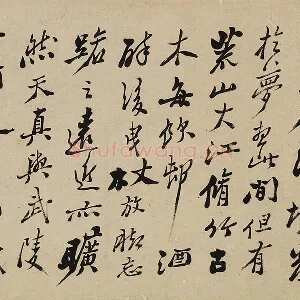 於夢此間但有
荒山大江脩竹古
木每飲邨酒
醉後曳杖放腳忘
路之遠近亦曠
然天真與武陵